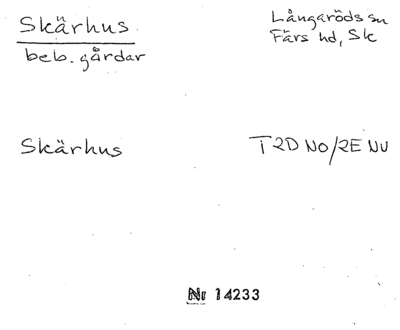 Skärhus
beb. gårdar
Långaröds sn
Färs hd, Sk
Skärhus
T 2D NO/2E NV
Nr 14233